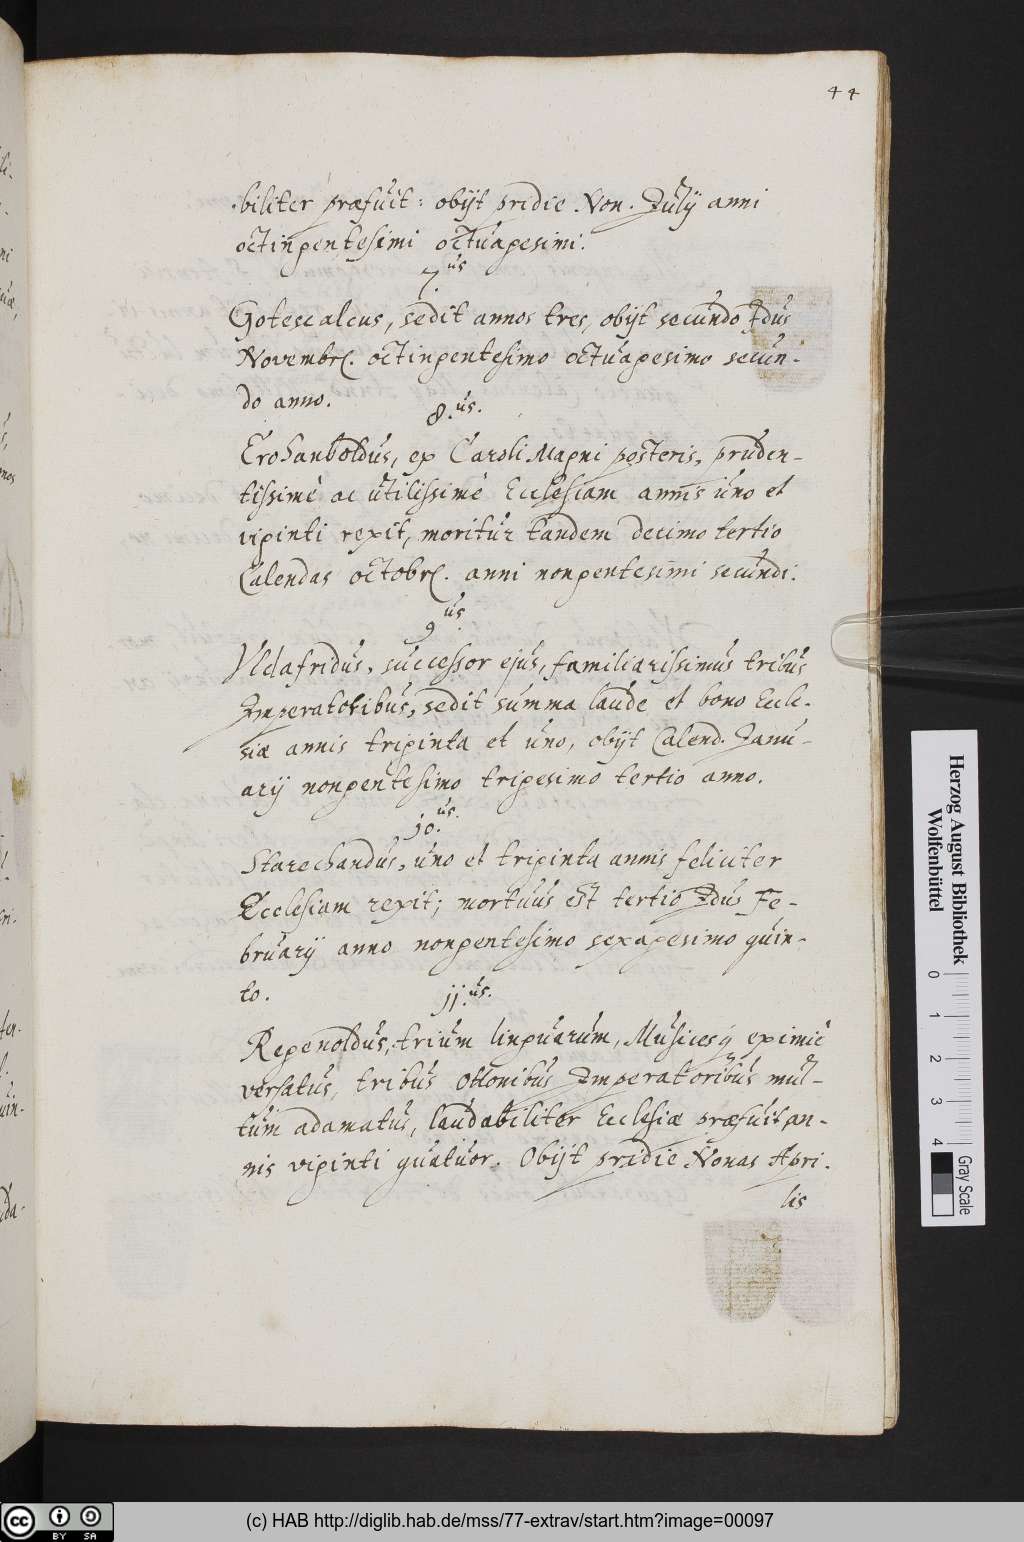 44
biliter præfuit: obijt pridie Non. Julij anni
octingentesimi octuagesimi.
7.us
Gotescalcus, sedit annos tres, obijt secundo Idus
Novembr. octingentesimo octuagesimo secun-
do anno.
8.us.
Erchanboldus, ex Caroli Magni posteris, pruden-
tissimè ac utilissimè Ecclesiam annis uno et
viginti rexit, moritur tandem decimo tertio
Calendas octobr. anni nongentesimi secundi.
9us.
Vldafridus, successor ejus, familiarissimus tribus
Imperatoribus, sedit summa laude et bono Eccle-
siæ annis triginta et uno, obijt Calend. Janu-
arij nongentesimo trigesimo tertio anno.
10.us.
Starechandus, uno et triginta annis feliciter
Ecclesiam rexit; mortuus est tertio Idus Fe-
bruarij anno nongentesimo sexagesimo quin-
to.
11.us.
Regenoldus, trium linguarum, Musicesq́ eximiè
versatus, tribus Ottonibus Imperatoribus mul-
tum adamatus, laudabiliter Ecclesiæ præfuit an-
nis viginti quatuor. Obijt pridie Nonas Apri-
lis
Herzog August Bibliothek
Wolfenbüttel
0 1 2 3 4
Gray Scale
cc BY SA
(c) HAB http://diglib.hab.de/mss/77-extrav/start.htm?image=00097